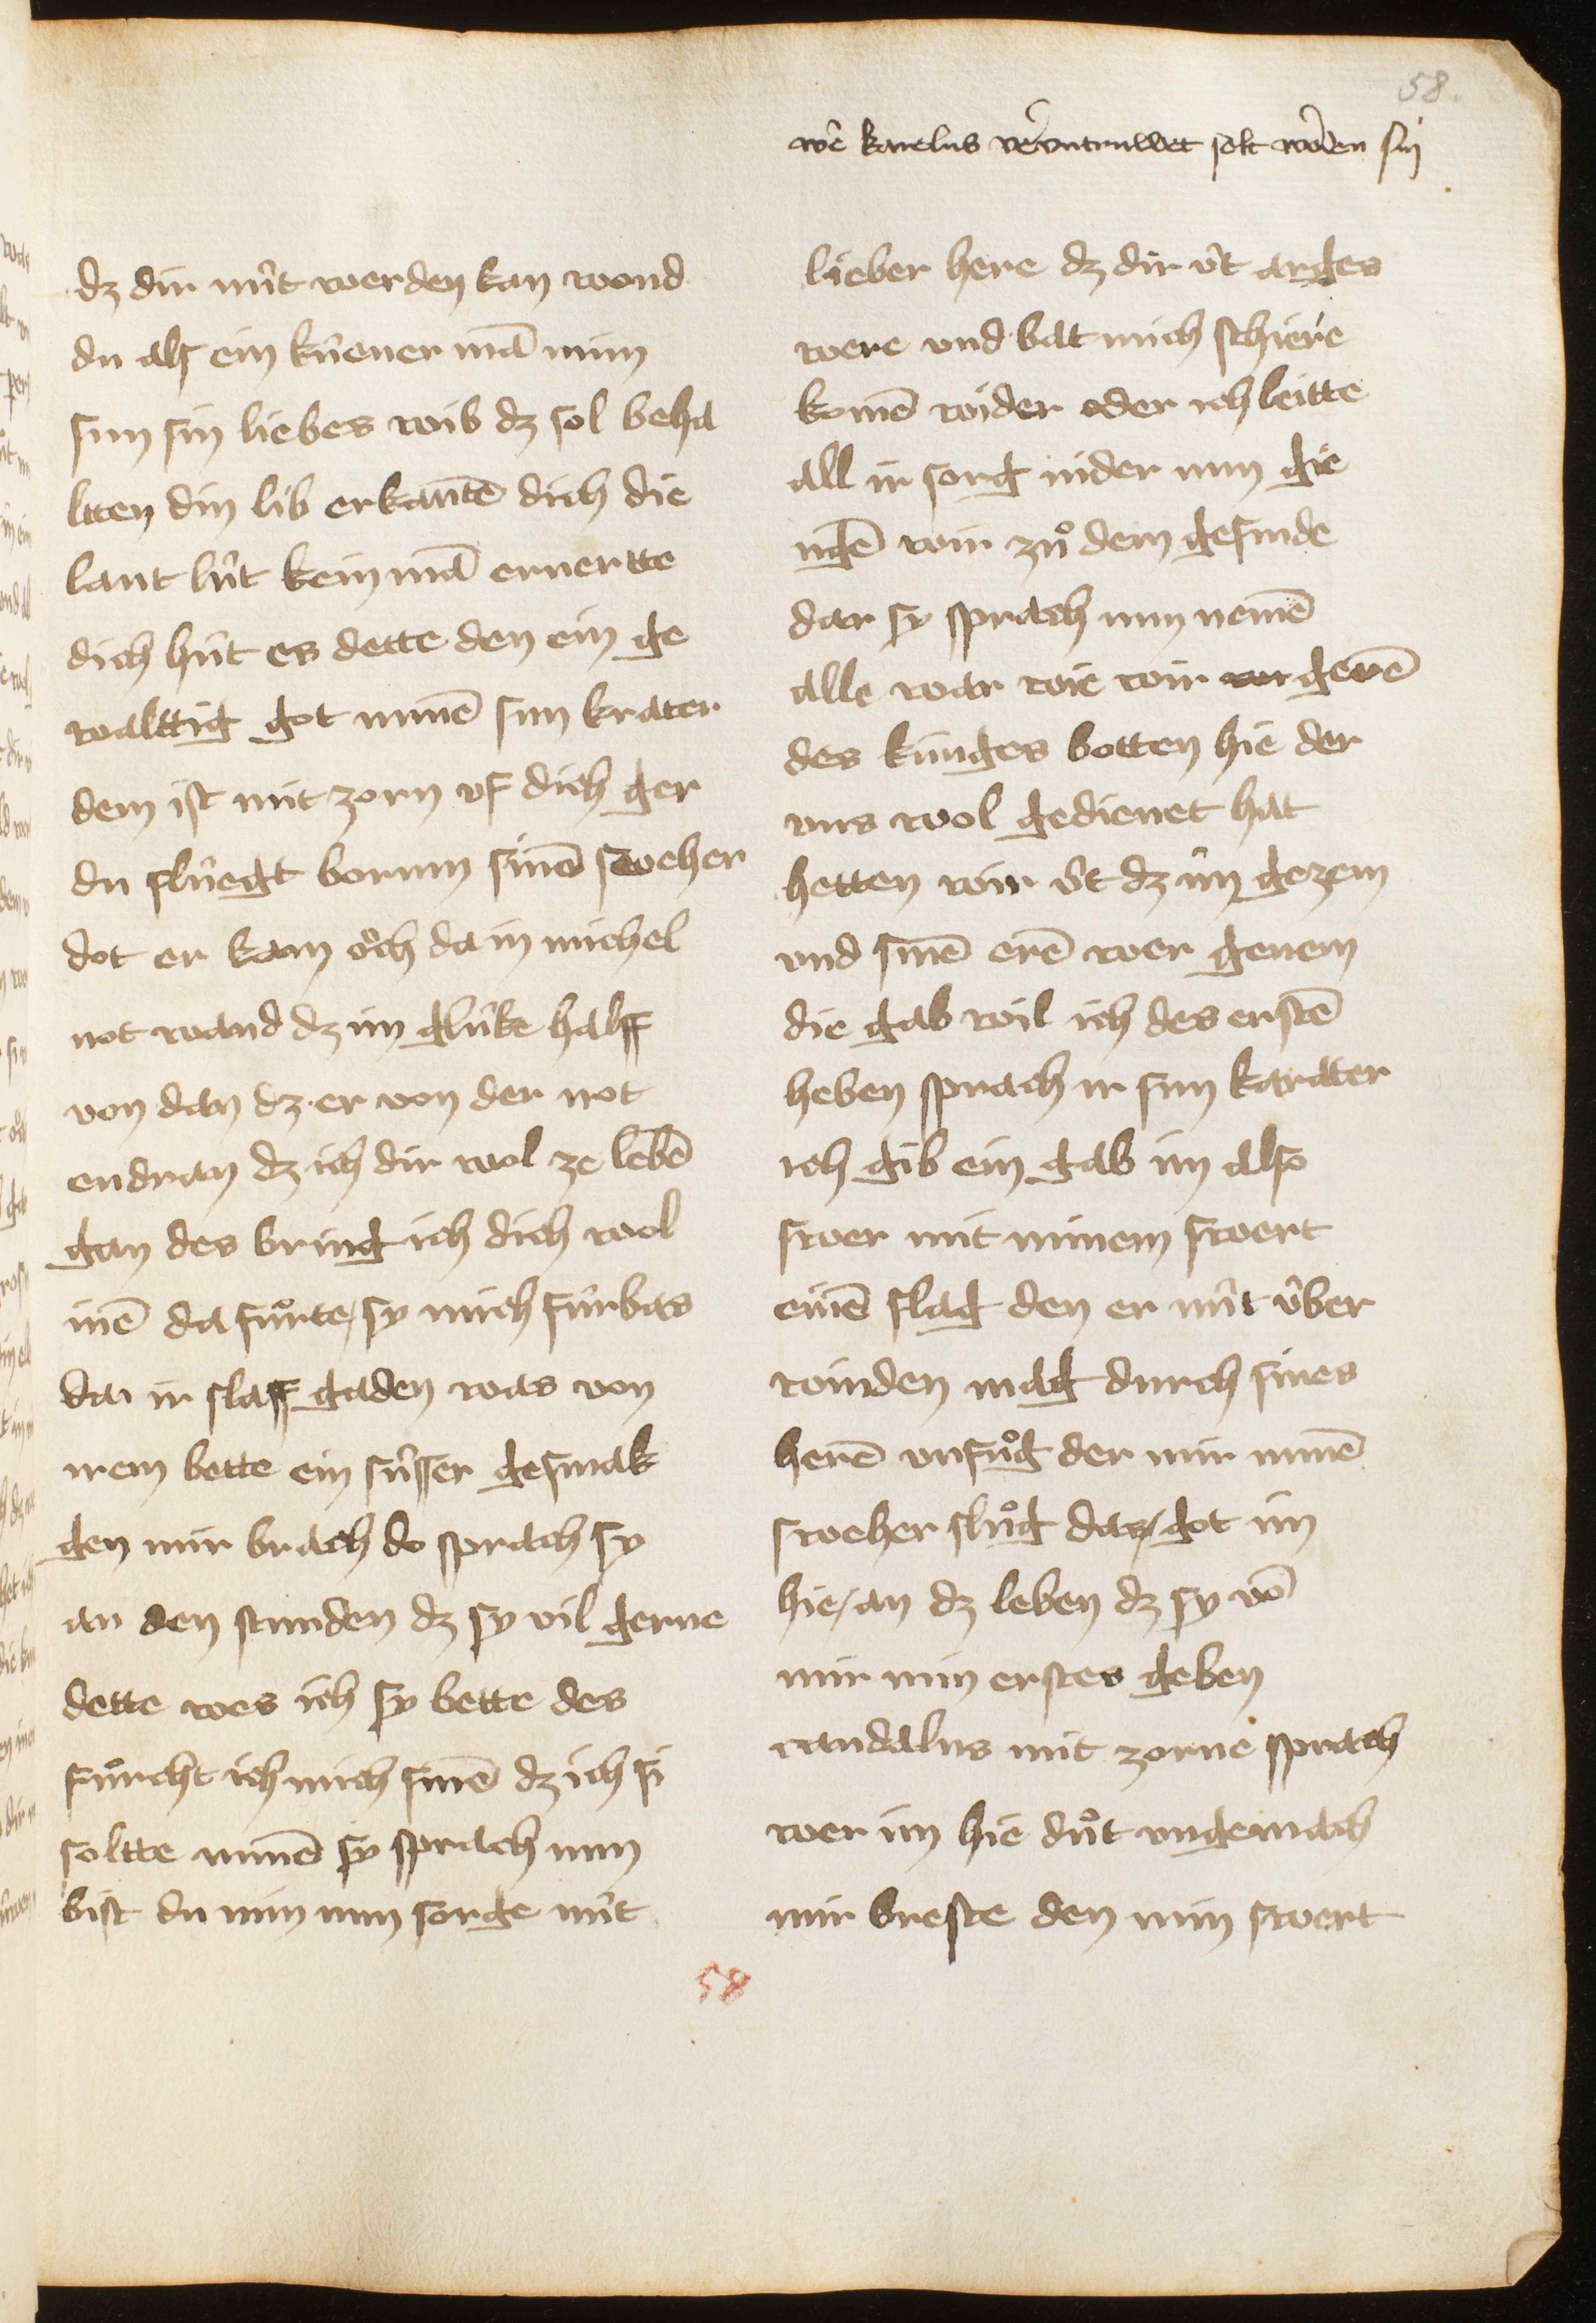 58.
wē karelus vervntruwet solt worden sin
dz dir nüt werden kan wond
du als ein küener mā nim
sun sin liebes wib dz sol beha
ltten din lib erkantē dich die
lant lüt kein mā ernertte
dich hüt es dette den ein ge
walttig got minē sun krater
dem ist mit zorn vf dich ger
du slüegt borum sinē sweher
dot er kam och da in michel
not wand dz im glüke halff
von dan dz er von der not
endran dz ich dir wol ze lebē
gan des bring ich dich wol
inē da fuͦrte sy mich fürbas
da ir slaff gaden was von
irem bette ein süsser gesmak
gen mir brach do sprach sy
an den stunden dz sy vil gerne
dette wes ich sy bette des
fuͦrcht ich mich sinē dz ich si
soltte minē sy sprach nun
bist du min nun sorge nüt
58
lieber here dz dir üt arges
were vnd bat mich schiere
komē wider oder ich leitte
all ir sorg nider nun gie
ngē wir zuͦ dem gesinde
dar sy sprach nun nemē
alle war wie wir gerē
des künges botten hie der
vns wol gedienet hat
hetten wir üt dz im gezem
vnd sinē erē wer genem
die gab wil ich des erstē
heben sprach ir sun karater
ich gib ein gab im also
swer mit minem swert
einē slag den er nüt über
winden mag durch sines
herē vnfuͦg der mir minē
sweher sluͦg das got im
hie an dz leben dz sy vō
mir min erstes geben
candalus mit zorne sprach
wer im hie duͦt vngemach
mir breste den min swert